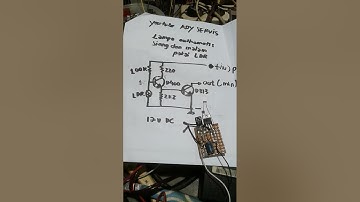 youtube ADY SERVIS
Lampu outhomatis
siang dan malam
pakai LDR
100K
220
+ in)
D400
out (min)
D313
222
LDR
12v DC